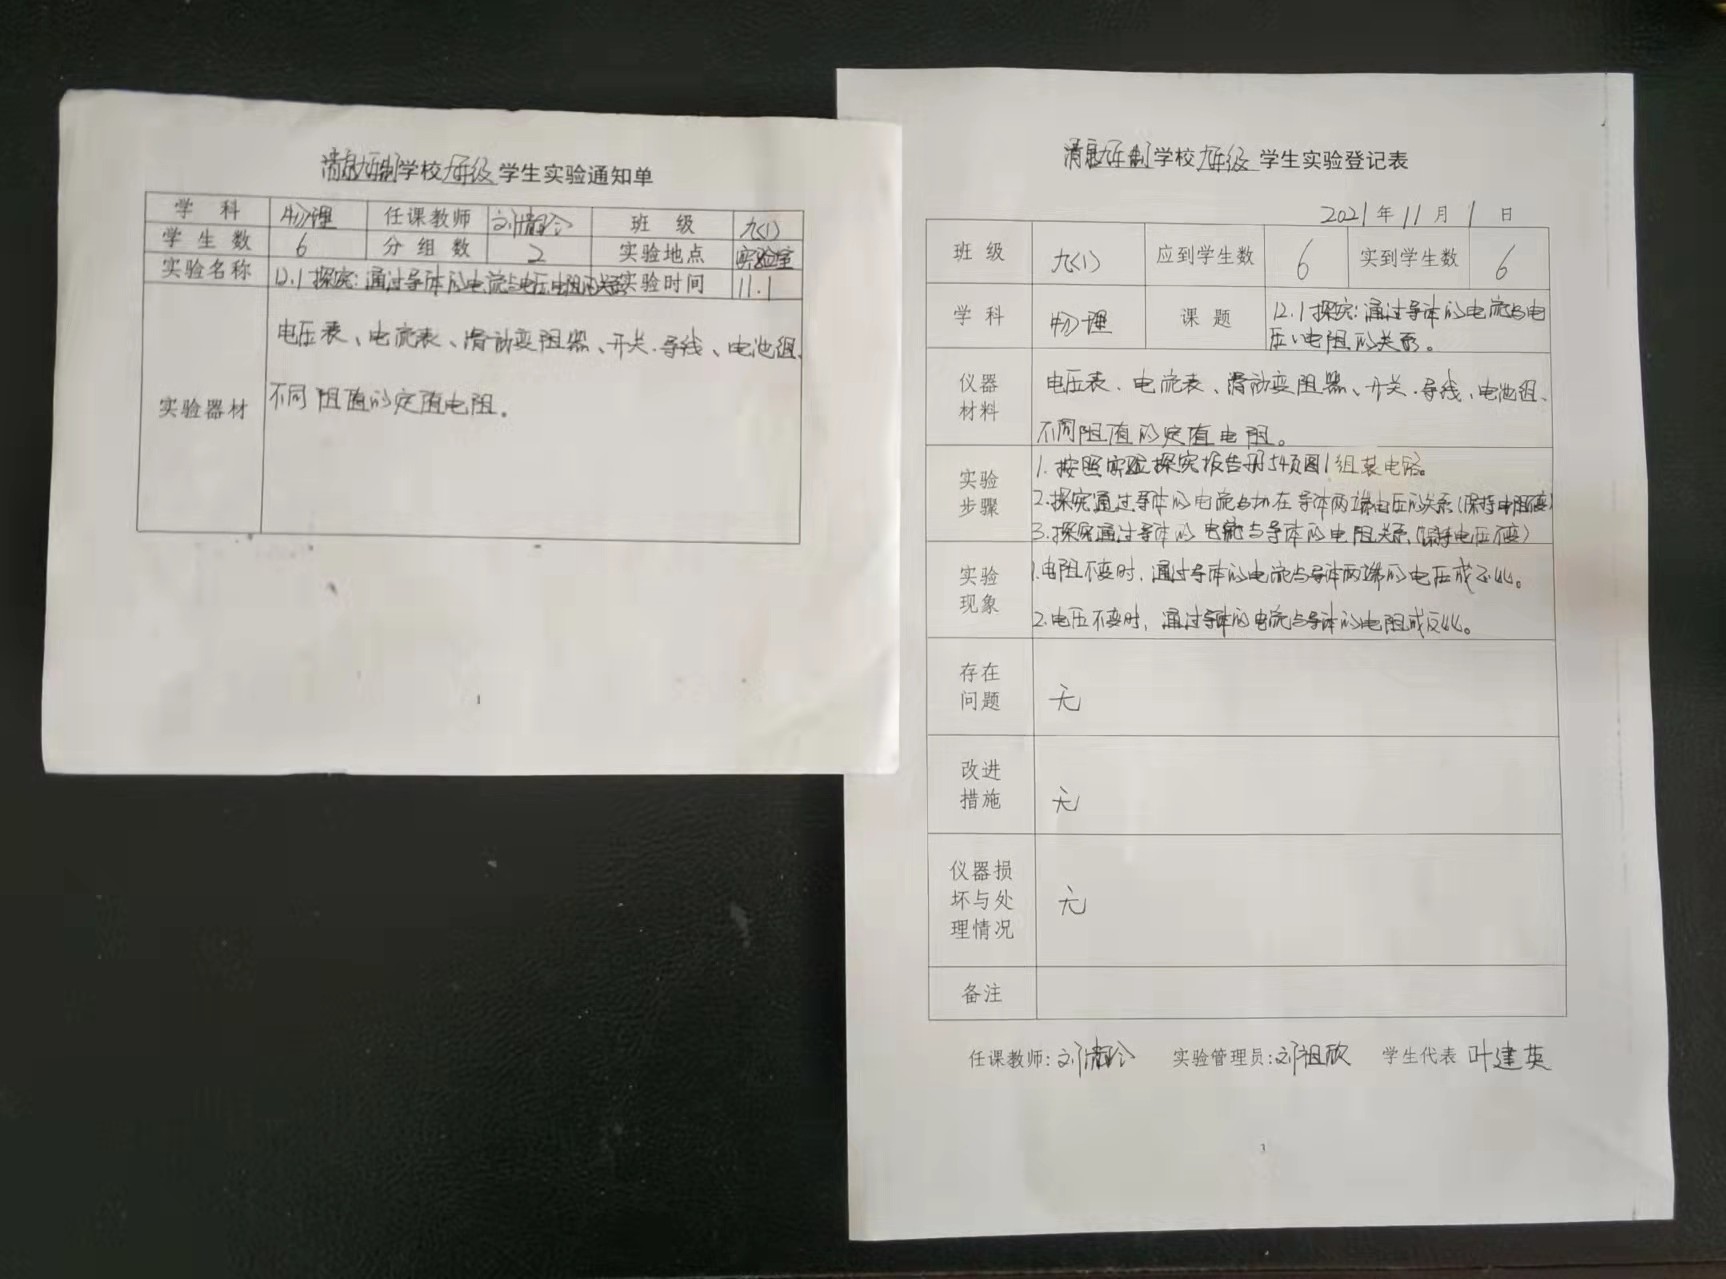 九年制学校九年级学生实验通知单
学科 物理 任课教师 班级 九(1)
学生数 6 分组数 2 实验地点 实验室
实验名称 12.1探究:通过导体的电流与电压、电阻的关系 实验时间 11.1
实验器材
电压表、电流表、滑动变阻器、开关、导线、电池组、
不同阻值的定值电阻。
1
九年制学校九年级学生实验登记表
2021年11月1日
班级 九(1) 应到学生数 6 实到学生数 6
学科 物理 课题 12.1探究:通过导体的电流与电
压、电阻的关系。
仪器
材料
电压表、电流表、滑动变阻器、开关、导线、电池组、
不同阻值的定值电阻。
实验
步骤
1.按照实验探究报告册54页图1组装电路。
2.探究通过导体的电流与加在导体两端电压的关系(保持电阻不变)
3.探究通过导体的电流与导体的电阻关系(保持电压不变)
实验
现象
1.电阻不变时,通过导体的电流与导体两端的电压成正比。
2.电压不变时,通过导体的电流与导体的电阻成反比。
存在
问题
无
改进
措施
无
仪器损
坏与处
理情况
无
备注
任课教师: 实验管理员:邓祖欣 学生代表 叶建英